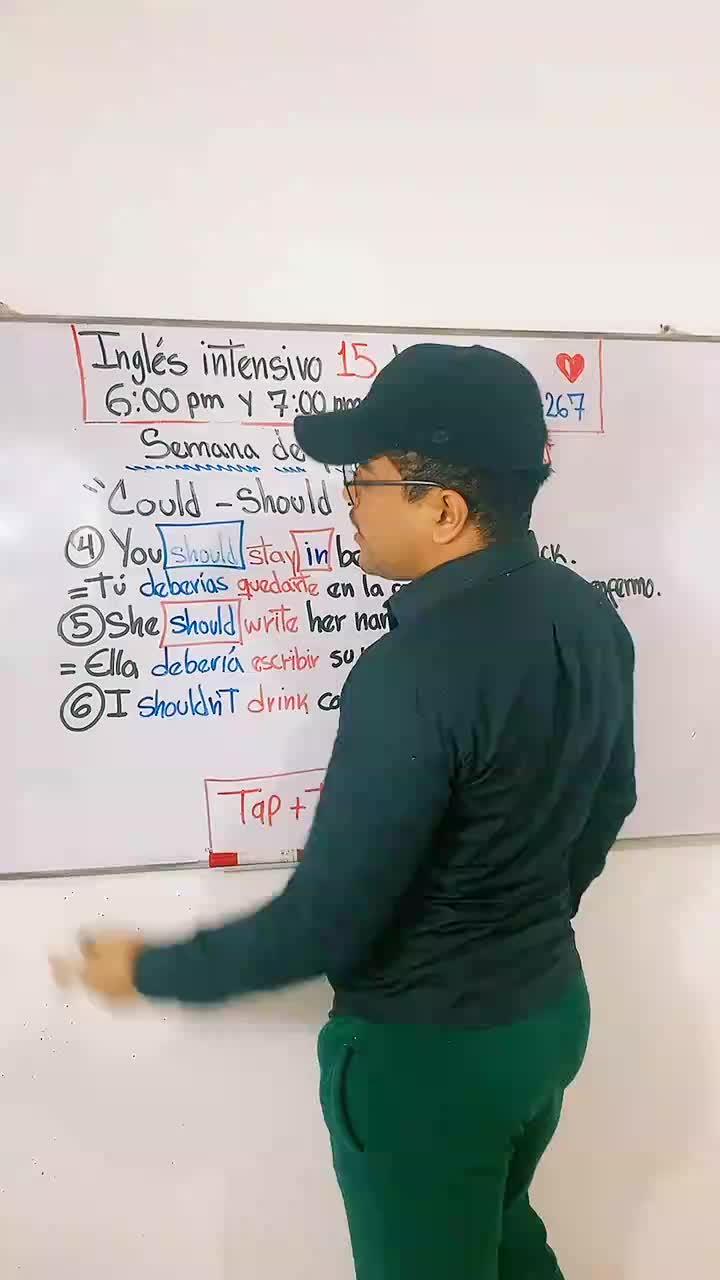 Inglés intensivo 15
6:00 pm y 7:00 pm 267
Semana de
"Could - Should
④ You should stay in
= Tú deberías quedarte en la
⑤ She should write her
= Ella debería escribir su
⑥ I shouldn't drink
Tap +